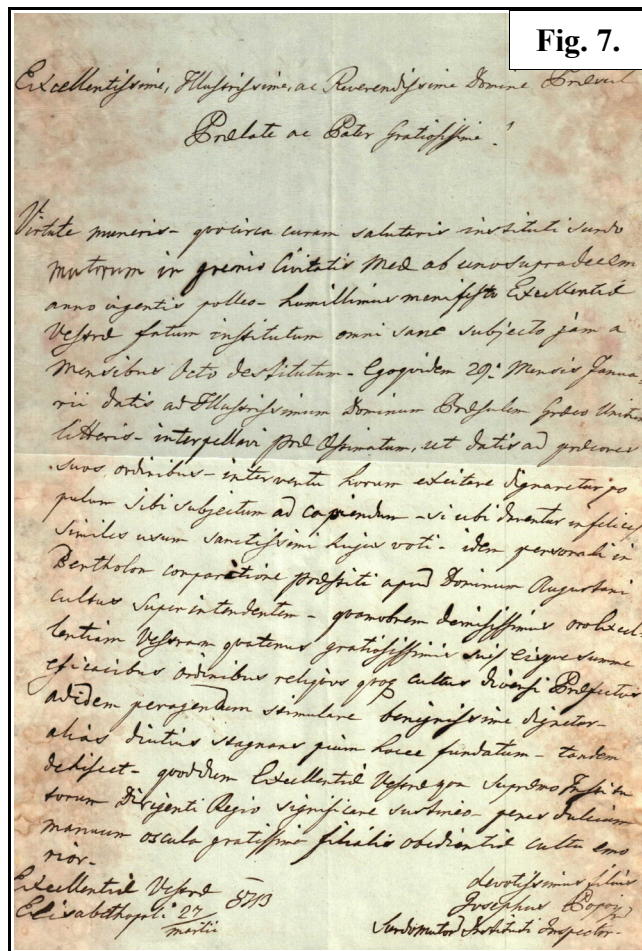 Fig. 7.
Excellentissime, Illustrissime, ac Reverendissime Domine Præsul
Prælate ac Pater Gratiosissime!
Virtute muneris - quo circa curam salutaris instituti surdo
mutorum in gremio Civitatis Meæ ab uno supra decem
anno vigentis polleo - humillimus manifesto Excellentiæ
Vestræ fatum institutum omni sane subjecto jam a
Mensibus Octo destitutum - Ego quidem 29a Mensis Janua
rii datis ad Illustrissimum Dominum Præsulem Græco Unitum
litteris - interpellavi præ Æstimatum, ut datis ad præcones
suos ordinibus - interventu horum excitere dignaretur po
pulum sibi subjectum ad capiendum - si ubi darentur infelices
similes usum sanctissimi hujus voti - idem personali in
Bertholon comparitione præstiti apud Dominum Augustani
cultus Superintendentem - quamobrem demississimus oro Excel-
lentiam Vestram quatenus gratiosissimis suis eisque summe
efficacibus ordinibus religios quoq cultus diversi Præfectos
ad idem peragendum stimulare benignissime dignetor -
alias diutius stagnans pium hocce fundatum - tandem
dehiscet - quod dum Excellentiæ Vestræ qua Supremo Institu
torum Dirigenti Regio significare sustineo - penes dulcium
manuum oscula gratissima filialis obedientiæ cultu emo
rior -
Excellentiæ Vestræ
Elisabethopoli 27 martii 843
devotissimus filius
Josephus
Surdomutor Instituti Inspector -